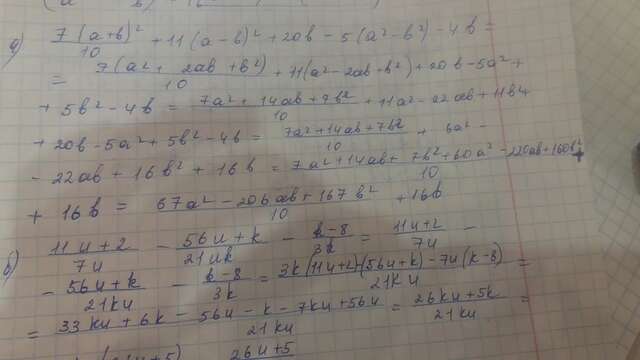 а) 7(a+b)²/10 + 11(a-b)² + 20b - 5(a²-b²) - 4b =
= 7(a² + 2ab + b²)/10 + 11(a² - 2ab + b²) + 20b - 5a² +
+ 5b² - 4b = 7a² + 14ab + 7b²/10 + 11a² - 22ab + 11b²
+ 20b - 5a² + 5b² - 4b = 7a² + 14ab + 7b²/10 + 6a² -
- 22ab + 16b² + 16b = 7a² + 14ab + 7b² + 60a² - 220ab + 160b²/10 +
+ 16b = 67a² - 206ab + 167b²/10 + 16b
б) 11u+2/7u - 56u+k/21uk - k-8/3k = 11u+2/7u -
- 56u+k/21ku - k-8/3k = 3k(11u+2)-(56u+k)-7u(k-8)/21ku =
= 33ku + 6k - 56u - k - 7ku + 56u/21ku = 26ku + 5k/21ku =
26u+5